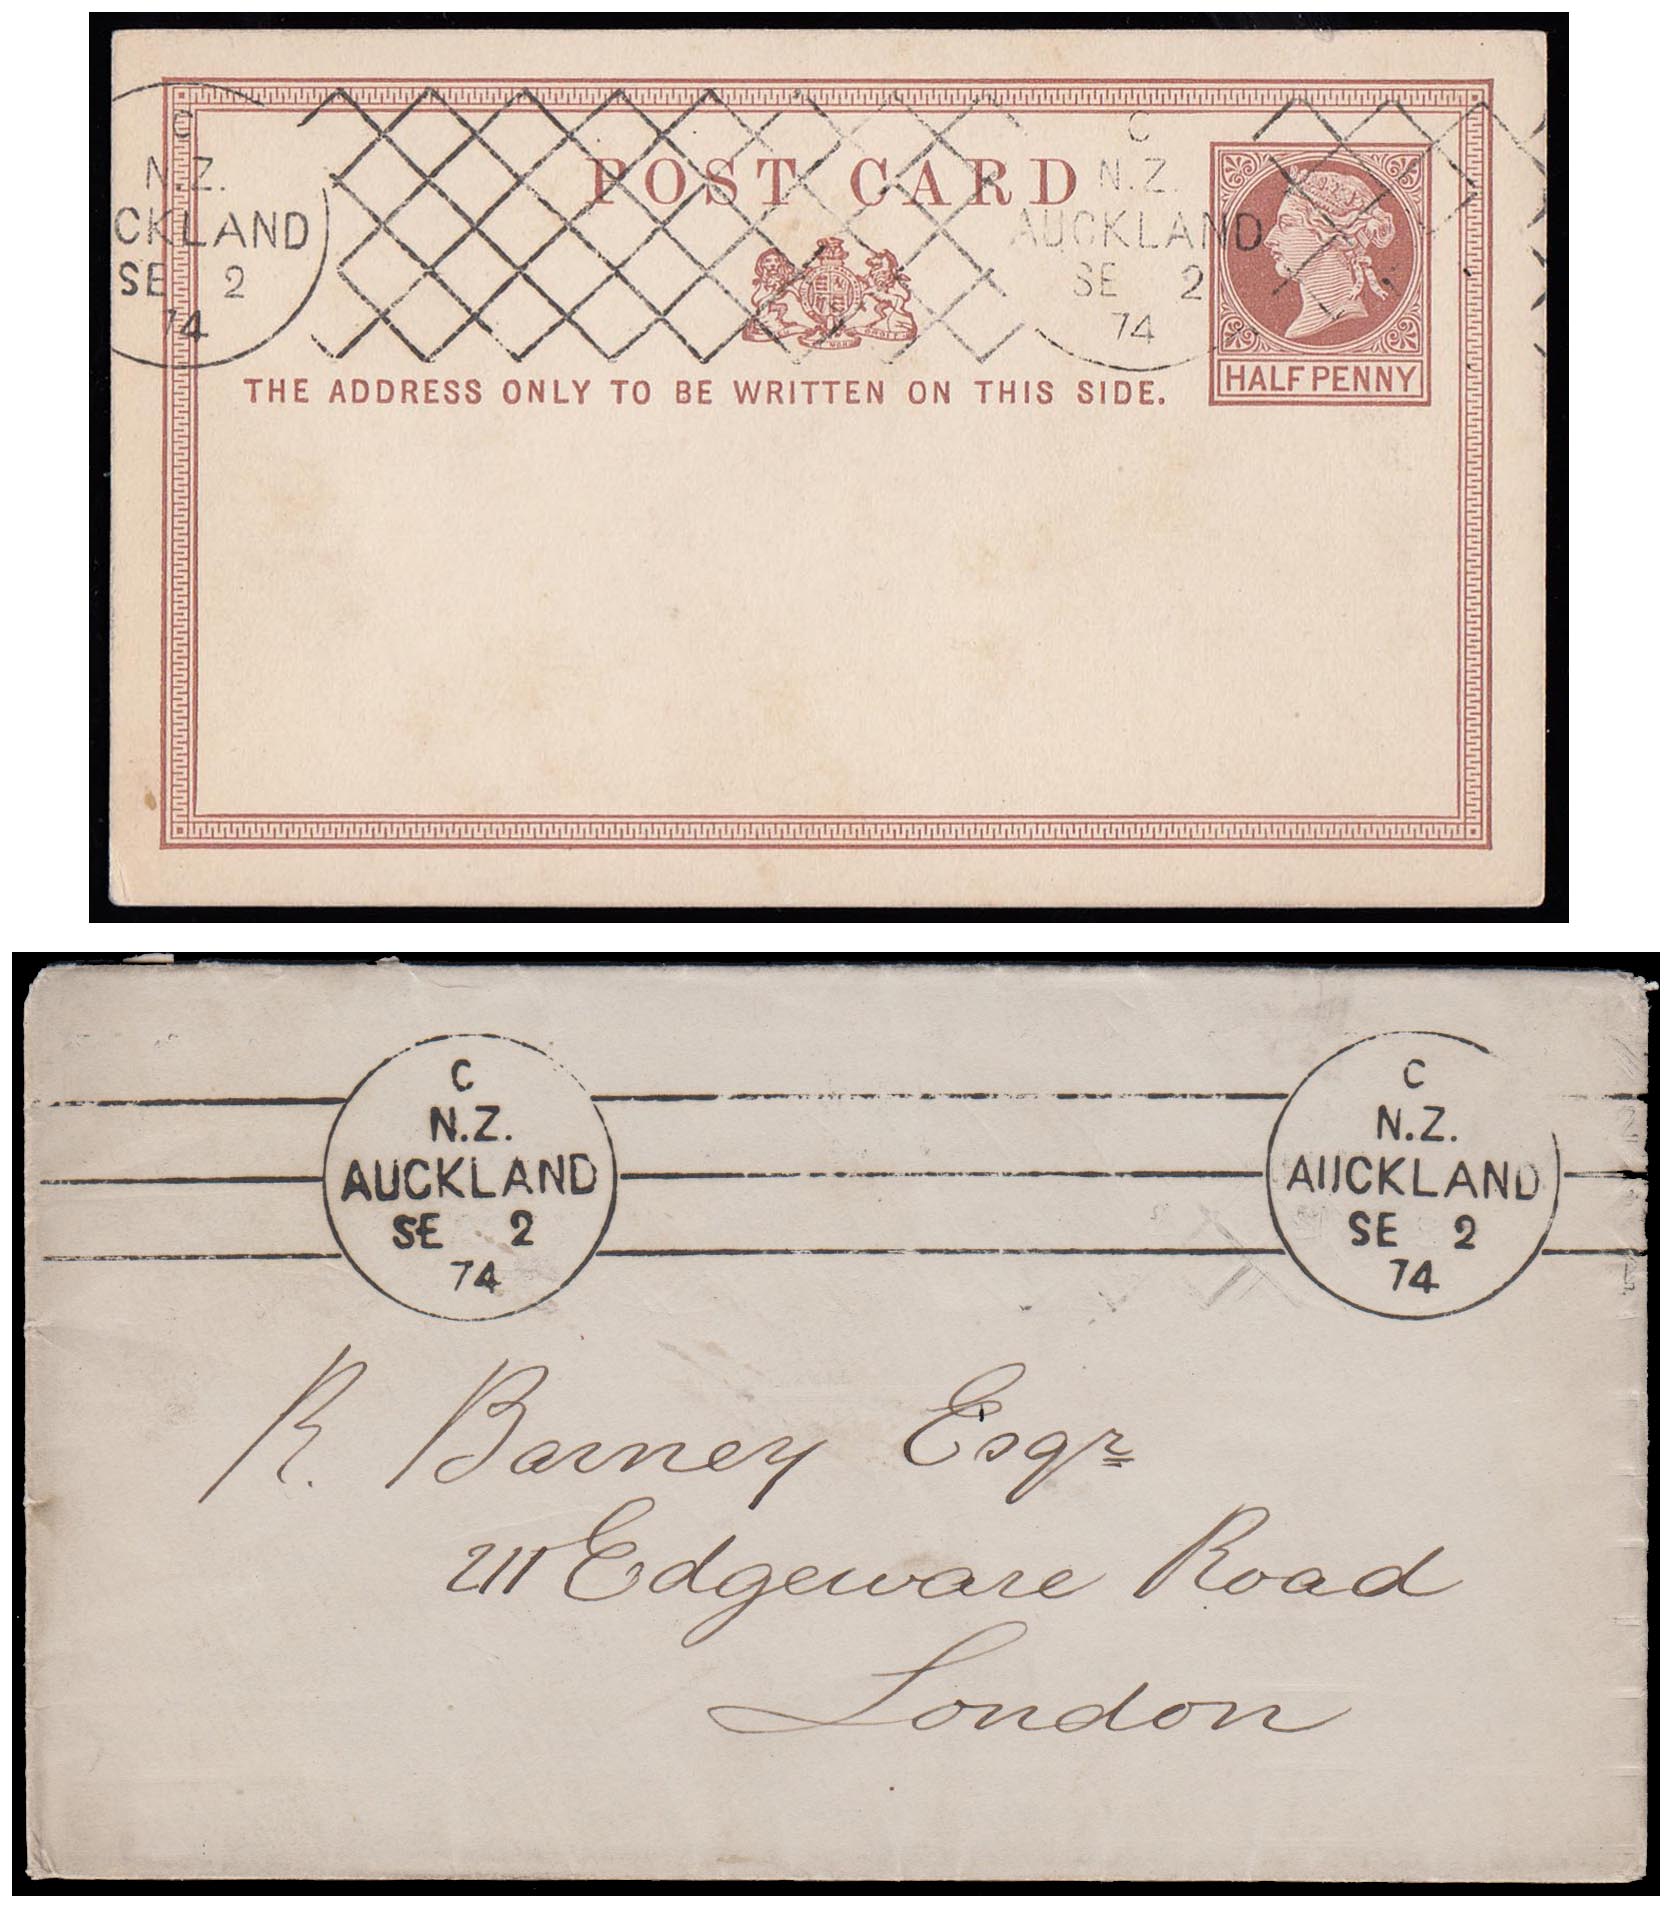 C
N.Z.
CKLAND
SE 2
74
POST CARD
C
N.Z.
AUCKLAND
SE 2
74
THE ADDRESS ONLY TO BE WRITTEN ON THIS SIDE.
HALFPENNY
C
N.Z.
AUCKLAND
SE 2
74
C
N.Z.
AUCKLAND
SE 2
74
R. Barney Esqr
211 Edgeware Road
London